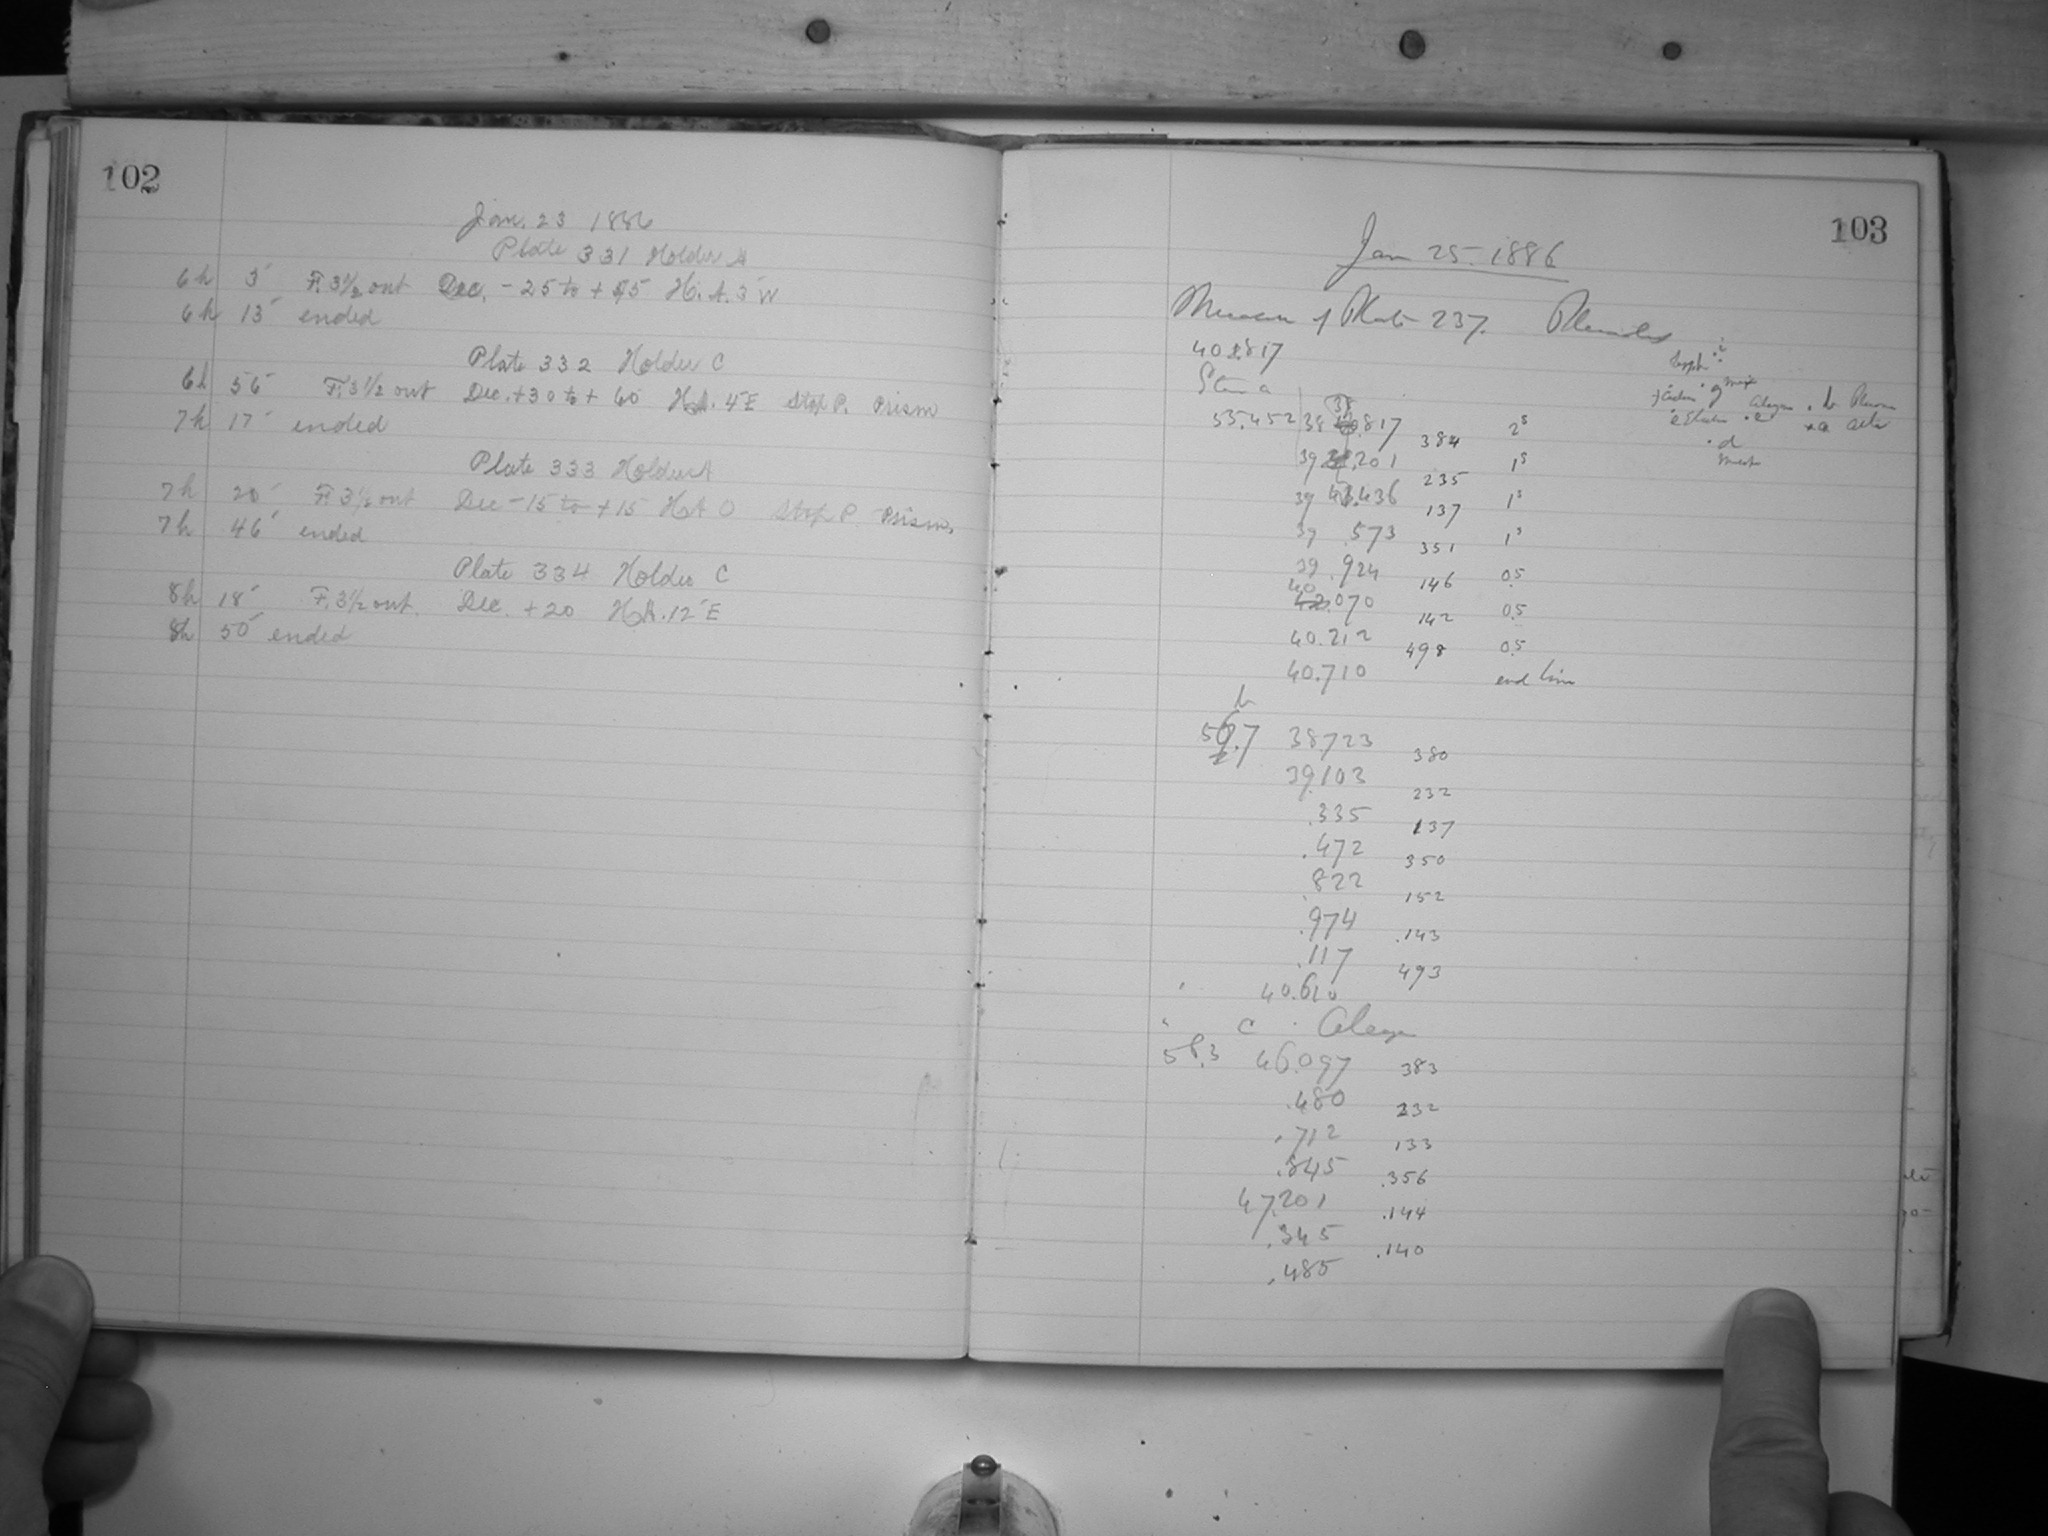 102
Jan. 23 1886
Plate 331 Holder A
6h 3' F. 3 1/2 out Dec. - 25 to + 5 H. A. 3' W
6h 13' ended
Plate 332 Holder C
6h 56' F. 3 1/2 out Dec. + 30 to + 60 H.A. 4' E Stop P. Prism
7h 17' ended
Plate 333 Holder A
7h 20' F. 3 1/2 out Dec - 15 to + 15 H.A 0 Stop P. Prism.
7h 46' ended
Plate 334 Holder C
8h 18' F. 3 1/2 out. Dec. + 20 H.A. 12' E
8h 50' ended
103
Jan 25. 1886
Measure of Plate 237. Pleiades
Star a
53.452 38 .817 384 2s
39 .201 235 1s
39 .436 137 1s
39 .573 351 1s
39 .924 146 0.5
40 .070 142 0.5
40.212 498 0.5
40.710 end line
b
38723 380
39.103 232
.335 137
.472 350
.822 152
.974 .143
.117 493
40.610
c Alcyo
58.3 46.097 383
.480 232
.712 133
.845 .356
47.201 .144
.345 .140
.485